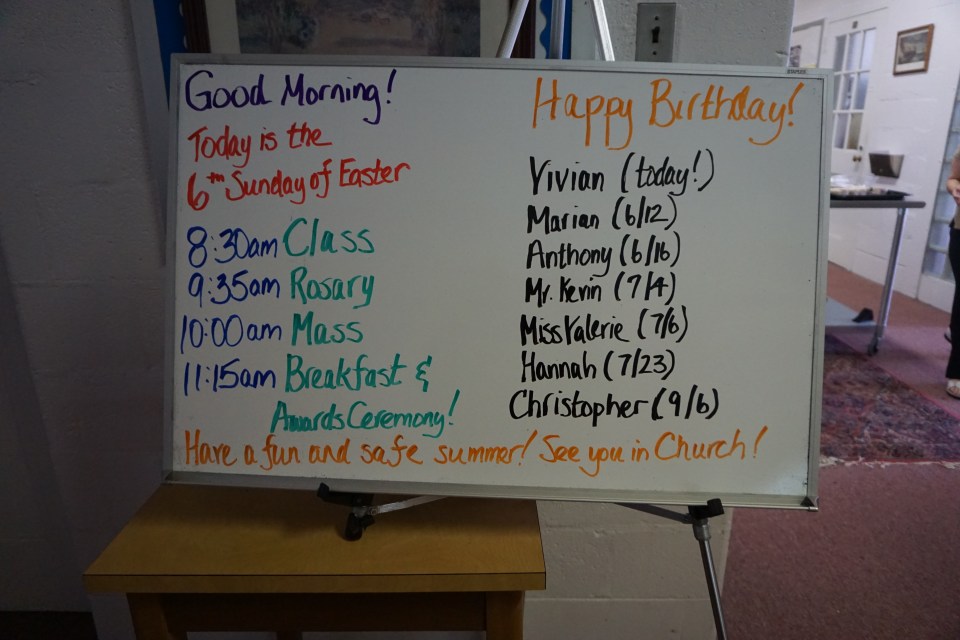 Good Morning!
Today is the
6th Sunday of Easter
8:30am Class
9:35am Rosary
10:00am Mass
11:15am Breakfast &
Awards Ceremony!
Happy Birthday!
Vivian (today!)
Marian (6/12)
Anthony (6/16)
Mr. Kevin (7/4)
Miss Valerie (7/6)
Hannah (7/23)
Christopher (9/6)
Have a fun and safe summer! See you in Church!